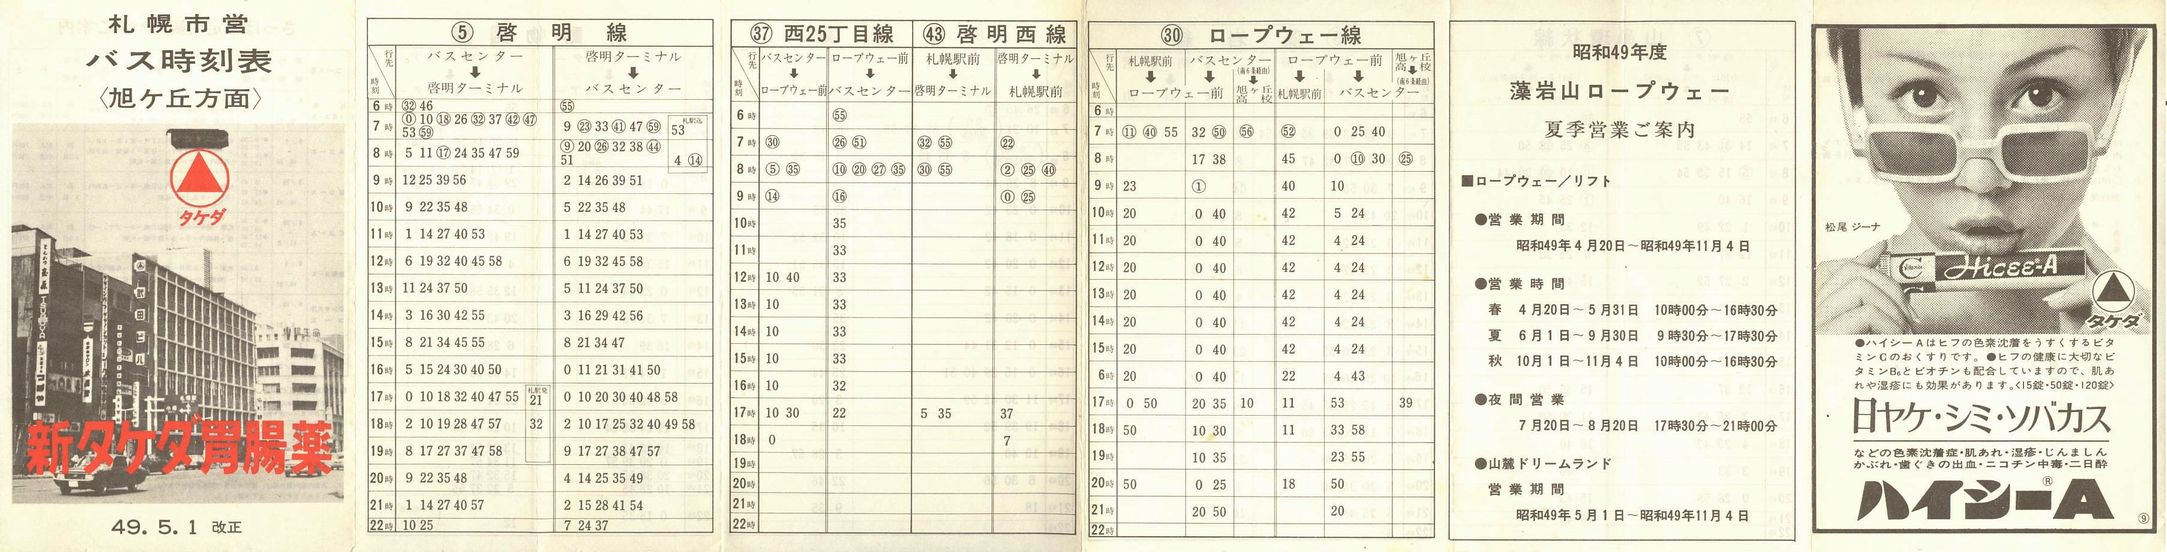 札幌市営
バス時刻表
〈旭ケ丘方面〉
タケダ
新タケダ胃腸薬
49. 5. 1 改正
⑤ 啓明線
行先 時刻
バスセンター ↓ 啓明ターミナル
啓明ターミナル ↓ バスセンター
6時 ㉜ 46 | 55
7時 ⓪ 10 ⑱ 26 ㉜ 37 ㊷ ㊼ 53 59 | 9 ㉓ 33 ㊶ 47 59 | 53
8時 5 11 ⑰ 24 35 47 59 | ⑨ 20 ㉖ 32 38 ㊹ 51 | 4 ⑭
9時 12 25 39 56 | 2 14 26 39 51
10時 9 22 35 48 | 5 22 35 48
11時 1 14 27 40 53 | 1 14 27 40 53
12時 6 19 32 40 45 58 | 6 19 32 45 58
13時 11 24 37 50 | 5 11 24 37 50
14時 3 16 30 42 55 | 3 16 29 42 56
15時 8 21 34 45 55 | 8 21 34 47
16時 5 15 24 30 40 50 | 0 11 21 31 41 50
17時 0 10 18 32 40 47 55 | 札駅発 21 | 0 10 20 30 40 48 58
18時 2 10 19 28 47 57 | 32 | 2 10 17 25 32 40 49 58
19時 8 17 27 37 47 58 | 9 17 27 38 47 57
20時 9 22 35 48 | 4 14 25 35 49
21時 1 14 27 40 57 | 2 15 28 41 54
22時 10 25 | 7 24 37
㊲ 西25丁目線 ㊸ 啓明西線
行先 時刻
バスセンター ↓ ロープウェー前
ロープウェー前 ↓ バスセンター
札幌駅前 ↓ 啓明ターミナル
啓明ターミナル ↓ 札幌駅前
6時 | 55
7時 ㉚ | ㉖ 51 | ㉜ 55 | ㉒
8時 ⑤ ㉟ | ⑩ ⑳ ㉗ ㉟ | ㉚ 55 | ② ㉕ ㊵
9時 ⑭ | ⑯ | ⓪ ㉕
10時 35
11時 33
12時 10 40 | 33
13時 10 | 33
14時 10 | 33
15時 10 | 33
16時 10 | 32
17時 10 30 | 22 | 5 35 | 37
18時 0 | 7
19時
20時
21時
22時
㉚ ロープウェー線
行先 時刻
札幌駅前 バスセンター ↓ ロープウェー前
(南6条経由) ↓ 旭ケ丘高校
ロープウェー前 ↓ 札幌駅前 バスセンター
旭ケ丘高校 ↓ (南6条経由)
6時
7時 ⑪ ㊵ 55 | 32 ㊿ | 56 | 52 | 0 25 40
8時 17 38 | 45 | 0 ⑩ 30 | ㉕
9時 23 | ① | 40 | 10
10時 20 | 0 40 | 42 | 5 24
11時 20 | 0 40 | 42 | 4 24
12時 20 | 0 40 | 42 | 4 24
13時 20 | 0 40 | 42 | 4 24
14時 20 | 0 40 | 42 | 4 24
15時 20 | 0 40 | 42 | 4 24
6時 20 | 0 40 | 22 | 4 43
17時 0 50 | 20 35 | 10 | 11 | 53 | 39
18時 50 | 10 30 | 11 | 33 58
19時 10 35 | 23 55
20時 50 | 0 25 | 18 | 50
21時 20 50 | 20
22時
昭和49年度
藻岩山ロープウェー
夏季営業ご案内
■ロープウェー／リフト
●営業期間
昭和49年4月20日〜昭和49年11月4日
●営業時間
春 4月20日〜5月31日 10時00分〜16時30分
夏 6月1日〜9月30日 9時30分〜17時30分
秋 10月1日〜11月4日 10時00分〜16時30分
●夜間営業
7月20日〜8月20日 17時30分〜21時00分
●山麓ドリームランド
営業期間
昭和49年5月1日〜昭和49年11月4日
松尾 ジーナ
Hicee-A
タケダ
●ハイシーAはヒフの色素沈着をうすくするビタ
ミンCのおくすりです。●ヒフの健康に大切なビ
タミンB₆とビオチンも配合していますので、肌あ
れや湿疹にも効果があります。〈15錠・50錠・120錠〉
日ヤケ・シミ・ソバカス
などの色素沈着症・肌あれ・湿疹・じんましん
かぶれ・歯ぐきの出血・ニコチン中毒・二日酔
ハイシーA®
⑨